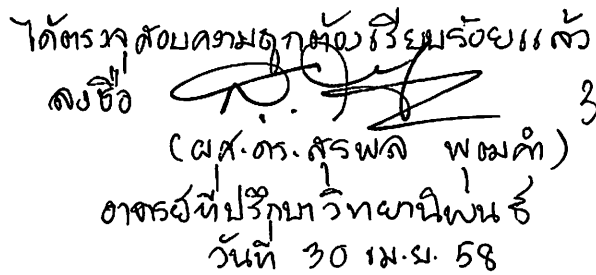 ได้ตรวจสอบความถูกต้องเรียบร้อยแล้ว
ลงชื่อ 3
(ผศ.ดร.สุรพล พุฒคำ)
อาจารย์ที่ปรึกษาวิทยานิพนธ์
วันที่ 30 เม.ย. 58